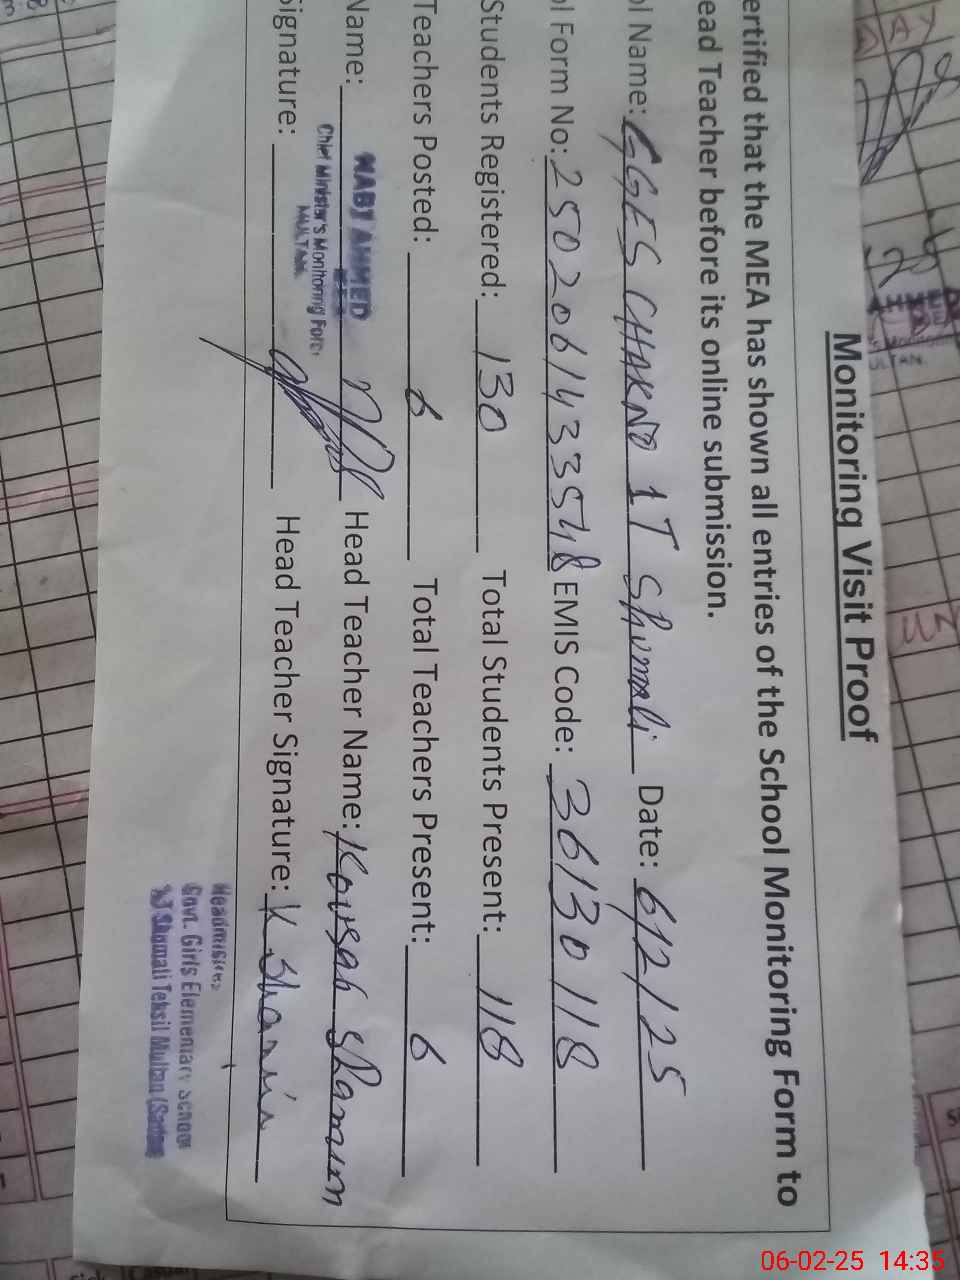 Monitoring Visit Proof
ertified that the MEA has shown all entries of the School Monitoring Form to
ead Teacher before its online submission.
ol Name: GGES CHAKNO 1T Shumali Date: 6/2/25
ol Form No: 2502061433548 EMIS Code: 36130118
Students Registered: 130 Total Students Present: 118
Teachers Posted: 6 Total Teachers Present: 6
Name: NABI AHMED Head Teacher Name: Kousar Shamim
Chief Minister's Monitoring Force
MULTAN.
Signature: Head Teacher Signature: K Shamim
Headmistress
Govt. Girls Elementary School
Shamali Teksil Multan (Saddar
ULTAN.
06-02-25 14:35